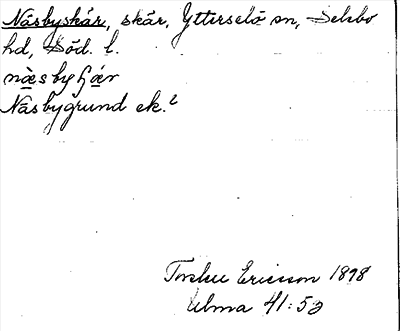 Näsbyskär, skär, Ytterselö sn, Selebo
hd, Söd. l.
Näsbygrund ek.²
Ericsson 1898
Ulma 41:52